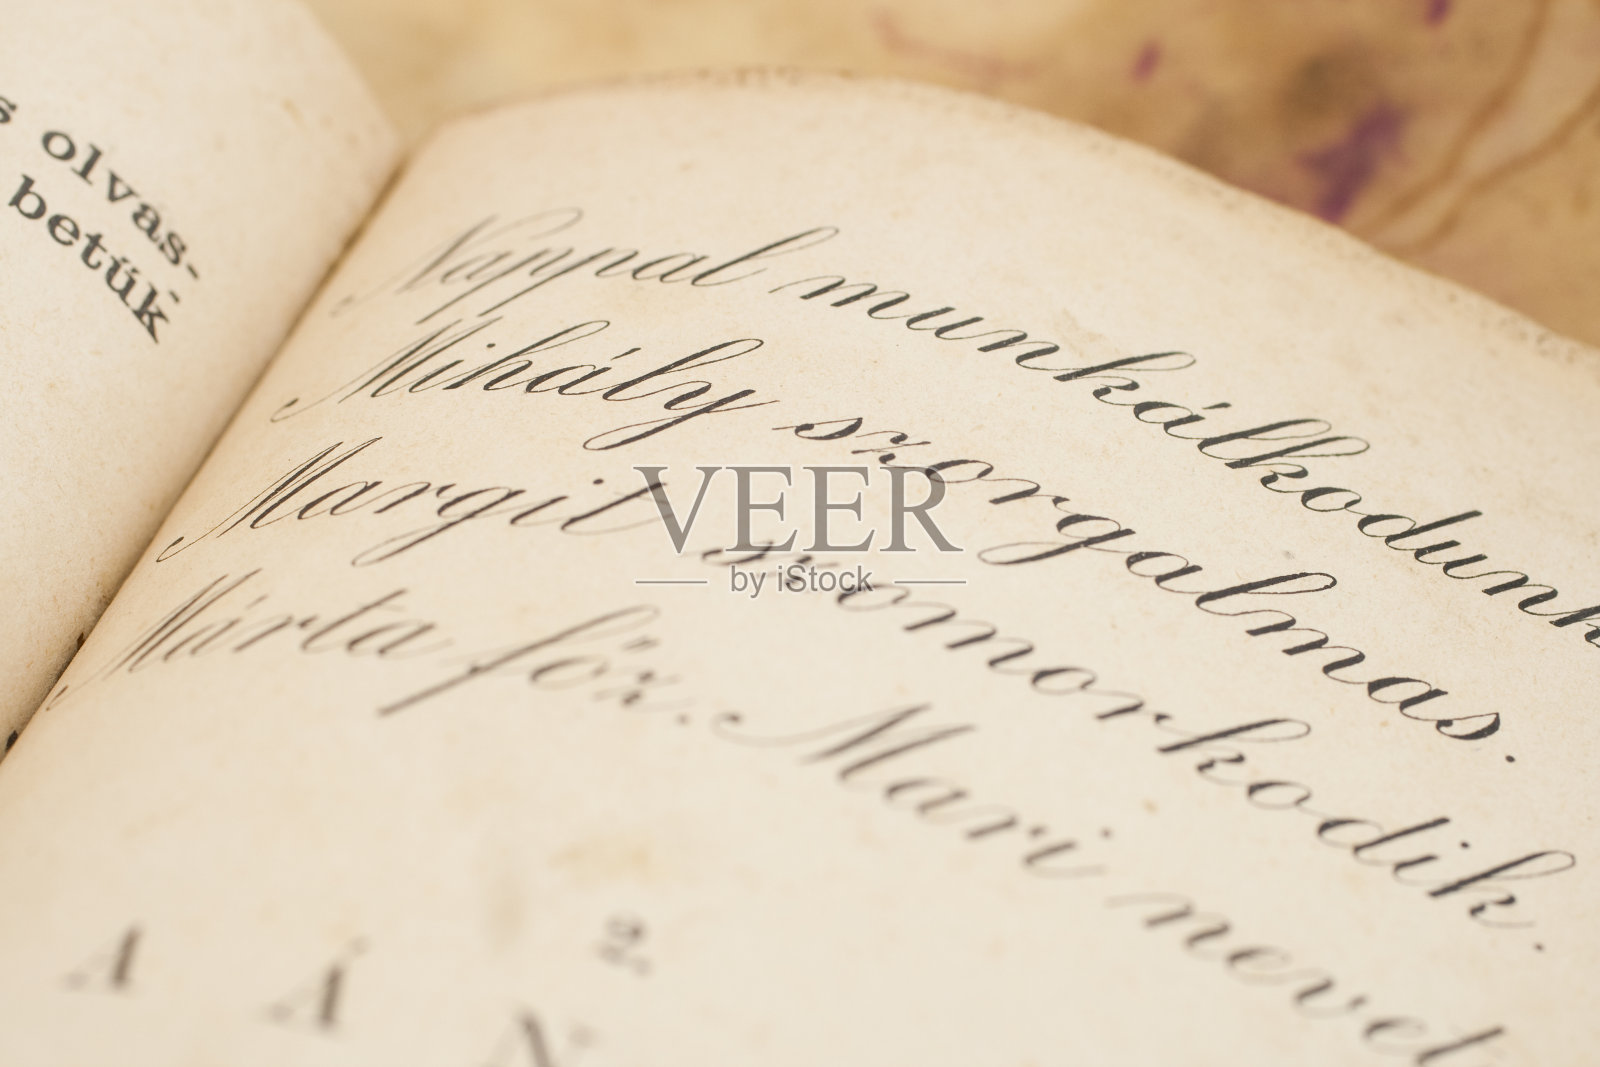 s olvas-
betük
Nappal munkálkodunk
Mihály szorgalmas.
Margit szomorkodik.
Márta főz. Mari nevet
2.
A Á
VEER
by iStock